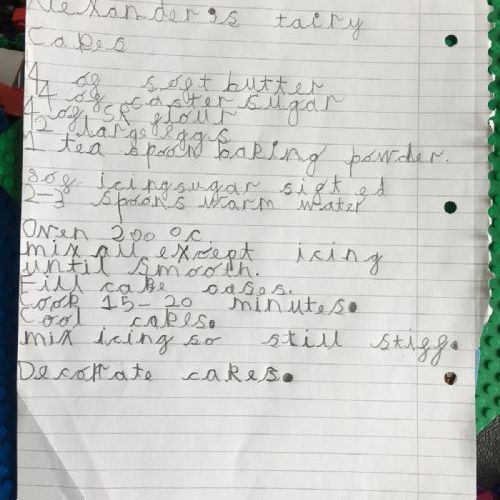 Alexander's tairy
Cakes
4 og sogt butter
4 og caster sugar
4 og SR flour
2 large eggs
1 tea spoon baking powder.
80g icing sugar sigted
2-3 spoons warm water
Oven 200 oc.
mix all except icing
until smooth.
Fill cake cases.
Cook 15-20 minutes.
Cool cakes.
mix icing so still stigg.
Decorate cakes.